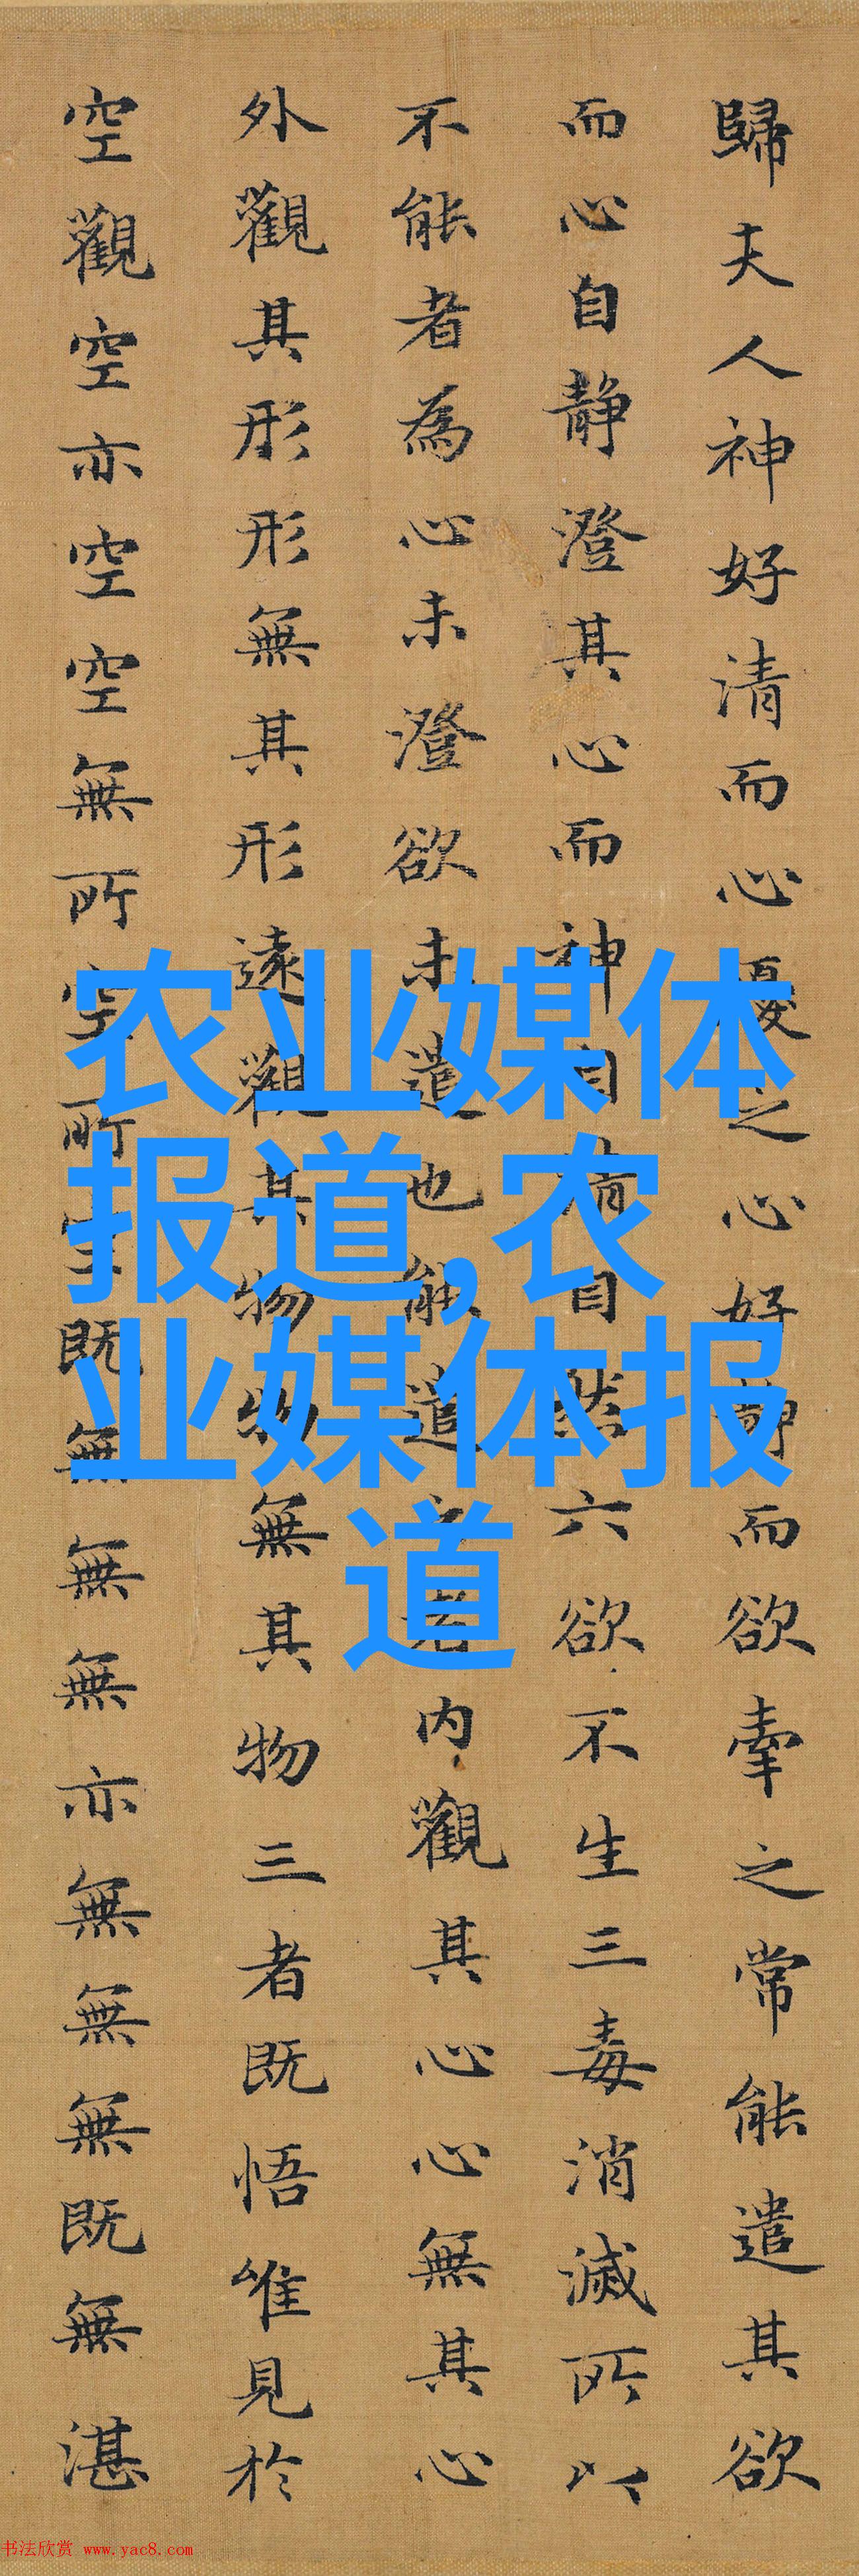 歸夫人神好清而心擾之心好靜而欲牽之常能遣其欲
而心自静澄其心而神自清自然六欲不生三毒消滅所以
不能者為心未澄欲未遣也能遣之者内觀其心心無其心
外觀其形形無其形遠觀其物物無其物三者既悟唯見於
空觀空亦空空無所空所空既無無無亦無無無既無湛
农业媒体
报道,农
业媒体报
道
书法欣赏 www.yac8.com